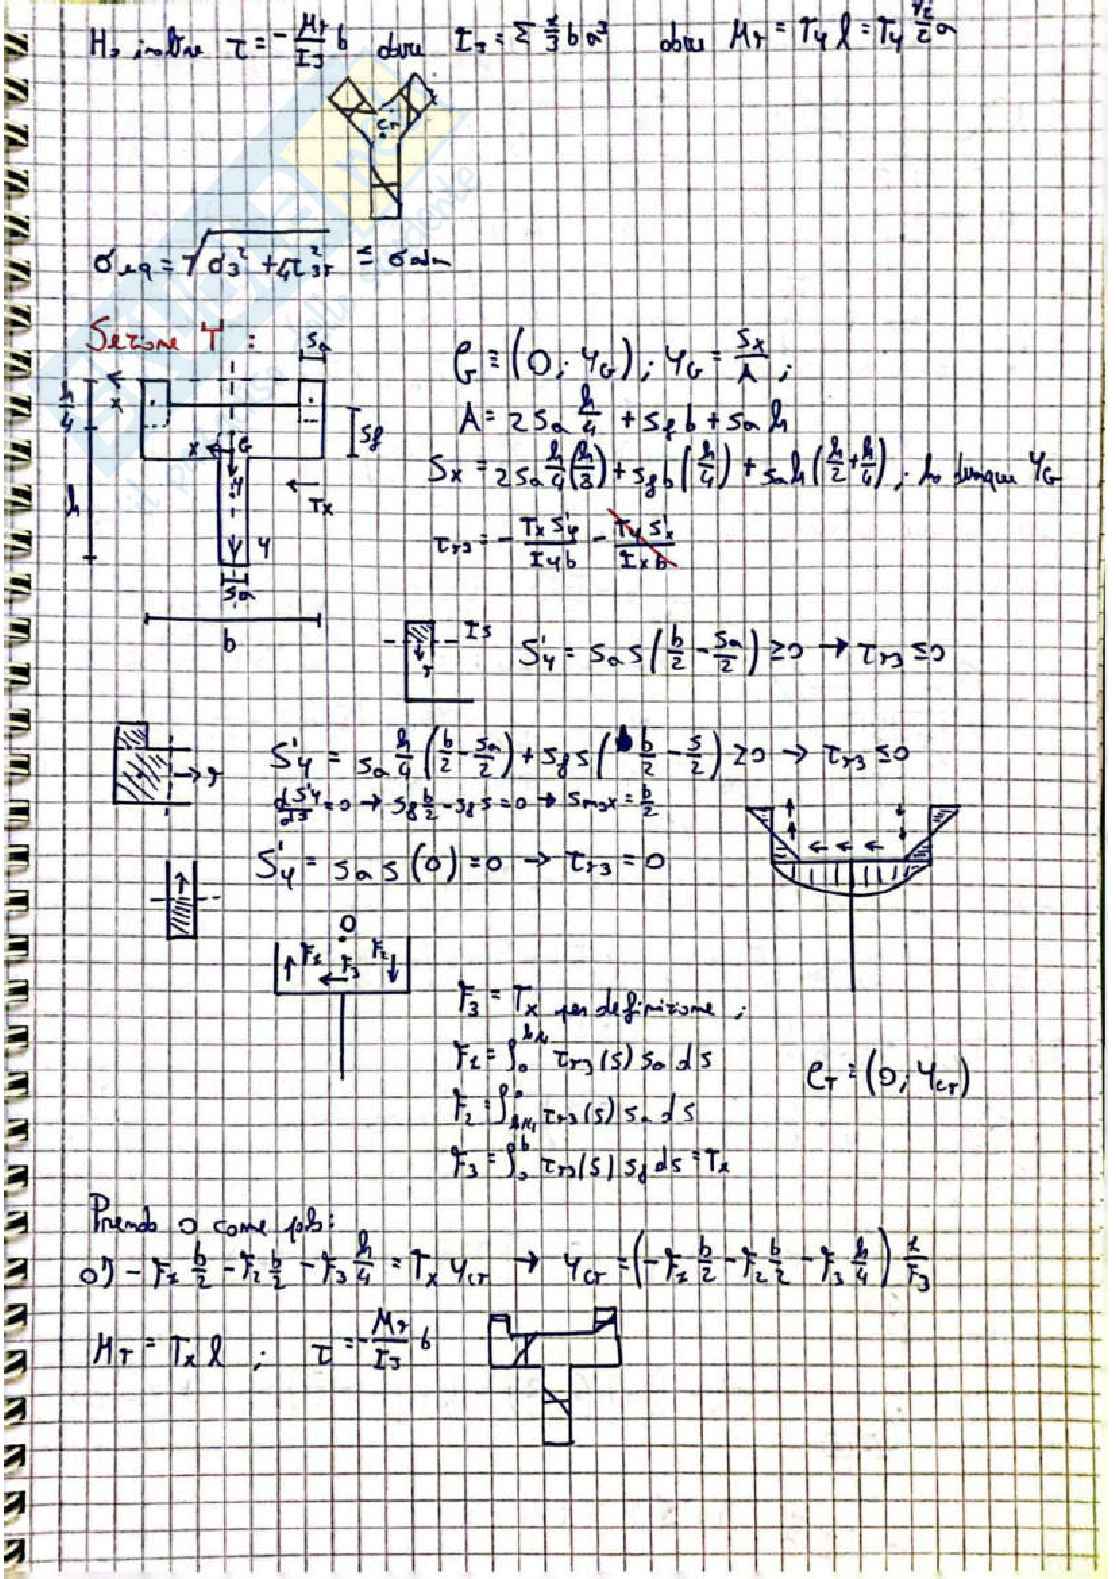 Ho inoltre τ = - Mτ/IJ b dove IJ = Σ 1/3 b a³ dove Mτ = Ty l = Ty √2/2 a
Cτ
σeq = √(σ3² + 4τ3r²) ≤ σadm
Sezione Y :
sa
G ≡ (0; YG); YG = Sx/A ;
h/4
x
sf
A = 2 sa h/4 + sf b + sa h
x G
y
Sx = 2 sa h/4 (h/8) + sf b (h/4) + sa h (h/2 + h/4) ; ho dunque YG
h
Tx
y
τr3 = - Tx S'y/Iy b - Ty S'x/Ix b
sa
b
Is
r
S'y = sa s (b/2 - sa/2) ≥ 0 → τr3 ≤ 0
S'y = sa h/4 (b/2 - sa/2) + sf s (b/2 - s/2) ≥ 0 → τr3 ≤ 0
dS'y/ds = 0 → sf b/2 - sf s = 0 → smax = b/2
S'y = sa s (0) = 0 → τr3 = 0
O
F1 F3 F2
F3 = Tx per definizione ;
F1 = ∫₀^h/4 τr3(s) sa ds
Cτ ≡ (0; Ycτ)
F2 = ∫h/4^0 τr3(s) sa ds
F3 = ∫₀^b τr3(s) sf ds = Tx
Prendo O come polo:
O) - F1 b/2 - F2 b/2 - F3 h/4 = Tx Ycτ → Ycτ = (- F1 b/2 - F2 b/2 - F3 h/4) 1/F3
Mτ = Tx l ; τ = - Mτ/IJ b